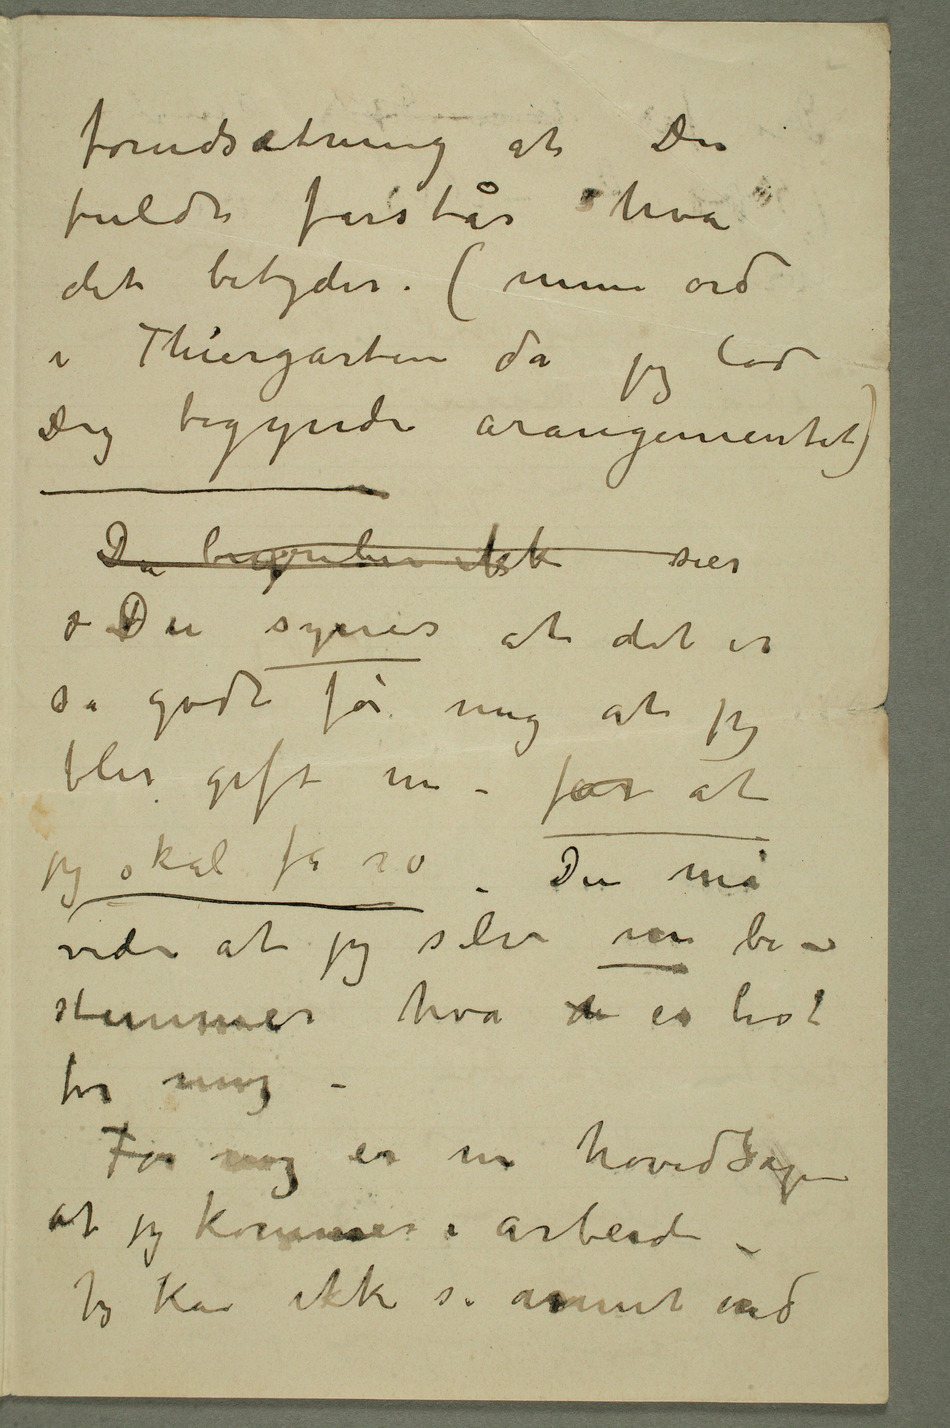 forudsætning at Du
fuldt forstår hva
det betyder. (mine ord
i Thiergarten da jeg lod
Dig begynde arangementet)
Du begriber ikke sier
Du synes at det er
så godt for mig at jeg
blir gift nu – for at
jeg skal få ro – Du må
vide at jeg selv nu be–
stemmer hva der er best
for mig –
For mig er nu hovedsagen
at jeg kommer i arbeide –
Jeg kan ikke se annet end